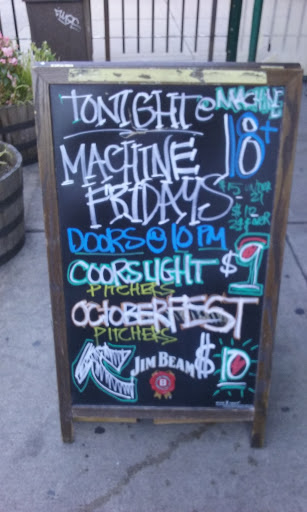 TONIGHT @ MACHINE
18+
MACHINE
FRIDAYS
$15 UNDER
21
$12
21 & OVER
DOORS @ 10 PM
COORS LIGHT $9
PITCHERS
OCTOBERFEST
PITCHERS
JIM BEAM
B
$